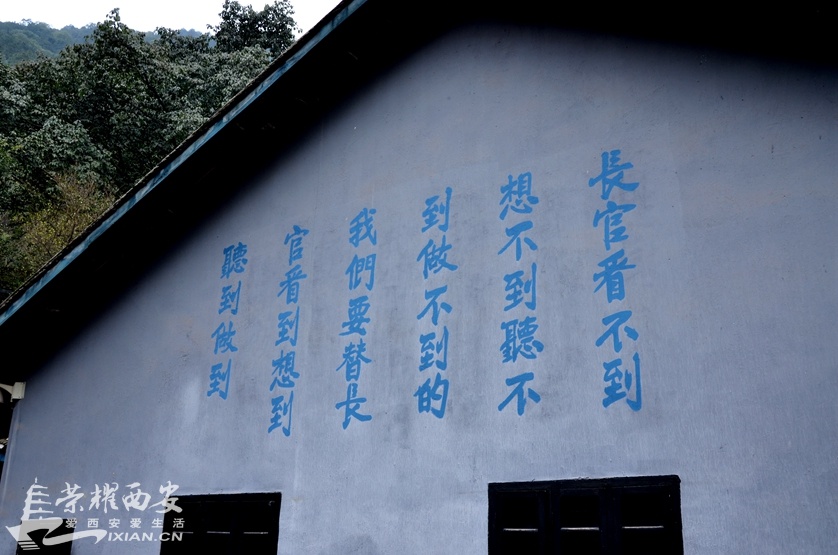 長官看不到
想不到聽不
到做不到的
我們要替長
官看到想到
聽到做到
荣耀西安
爱西安爱生活
IXIAN.CN